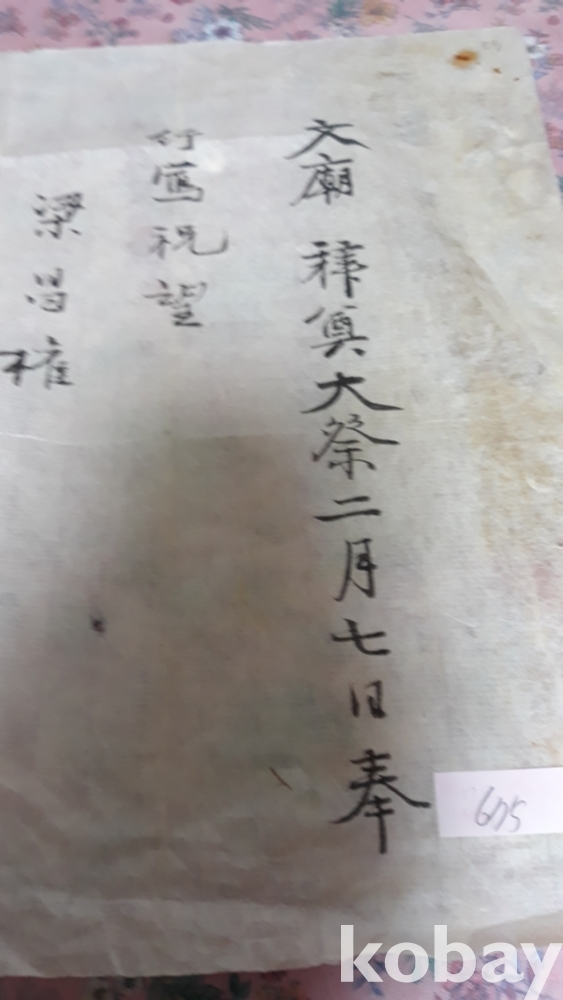 文廟 釋奠大祭二月七日奉
行寫祝望
梁昌權
675
kobay